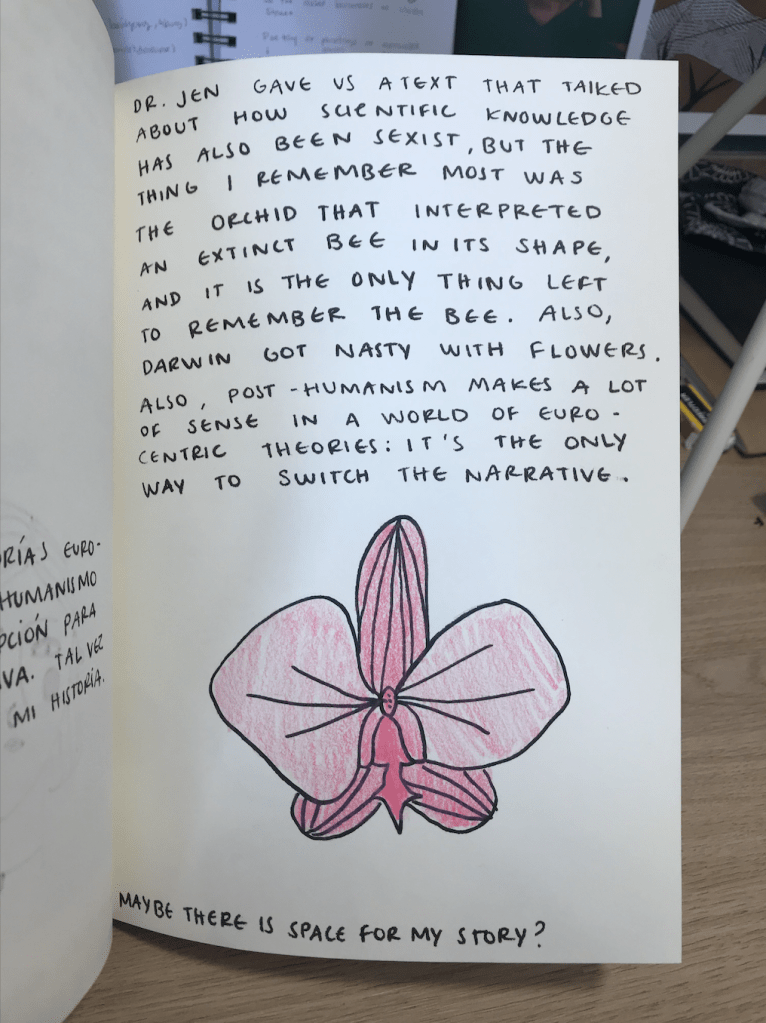 DR. JEN GAVE US A TEXT THAT TALKED
ABOUT HOW SCIENTIFIC KNOWLEDGE
HAS ALSO BEEN SEXIST, BUT THE
THING I REMEMBER MOST WAS
THE ORCHID THAT INTERPRETED
AN EXTINCT BEE IN ITS SHAPE,
AND IT IS THE ONLY THING LEFT
TO REMEMBER THE BEE. ALSO,
DARWIN GOT NASTY WITH FLOWERS.
ALSO, POST-HUMANISM MAKES A LOT
OF SENSE IN A WORLD OF EURO-
CENTRIC THEORIES: IT'S THE ONLY
WAY TO SWITCH THE NARRATIVE.
MAYBE THERE IS SPACE FOR MY STORY?
RÍAS EURO-
HUMANISMO
PCIÓN PARA
VA. TAL VEZ
MI HISTORIA.